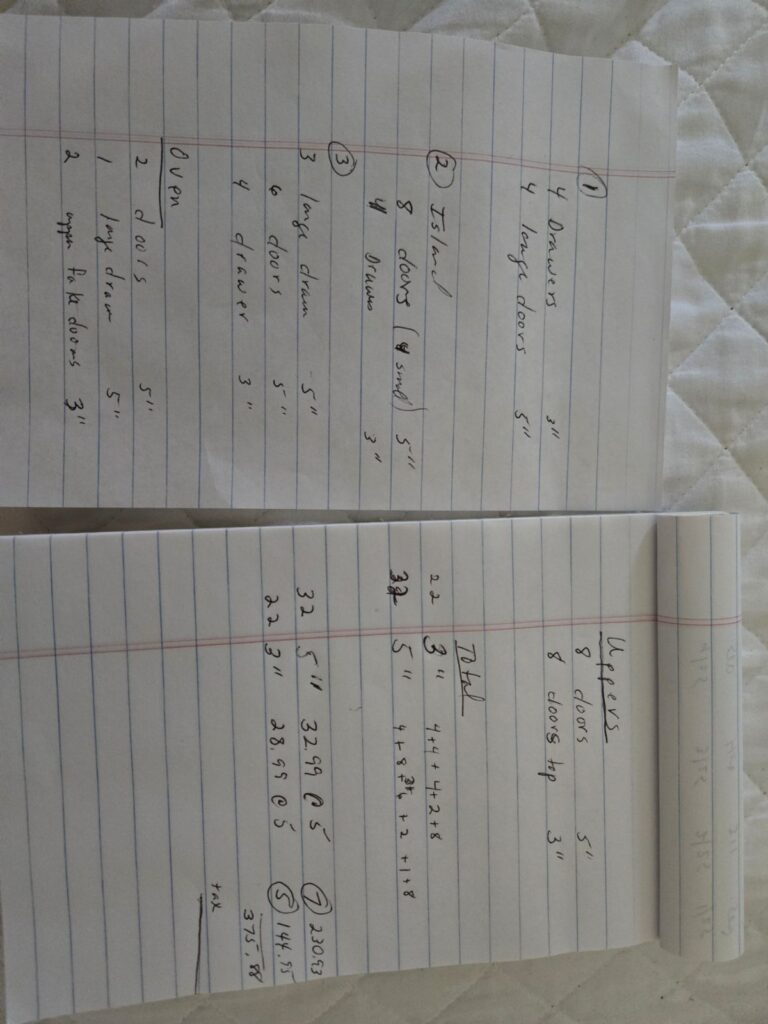 ①
4 Drawers 3"
4 large doors 5"
② Island
8 doors (4 small) 5"
4 Drawers 3"
③
3 large draw 5"
6 doors 5"
4 drawer 3"
Oven
2 doors 5"
1 large draw 5"
2 upper fake doors 3"
Uppers
8 doors 5"
8 doors top 3"
Total
22 3" 4+4+4+2+8
32 5" 4+8+3+6+2+1+8
32 5" 32.99 @ 5 ⑦ 230.93
22 3" 28.99 @ 5 ⑤ 144.95
375.88
tax